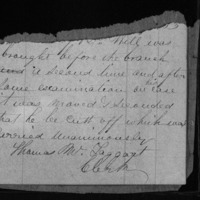 Mill was
brought before the branch
second time and after
some examination on case
it was moved & seconded
that he be cutt off which was
carried unanimously
Thomas Mc Taggart
Clerk